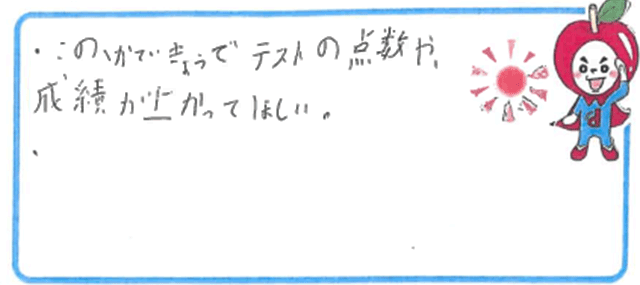 ・このかてきょうでテストの点数や、
成績が上がってほしい。
・